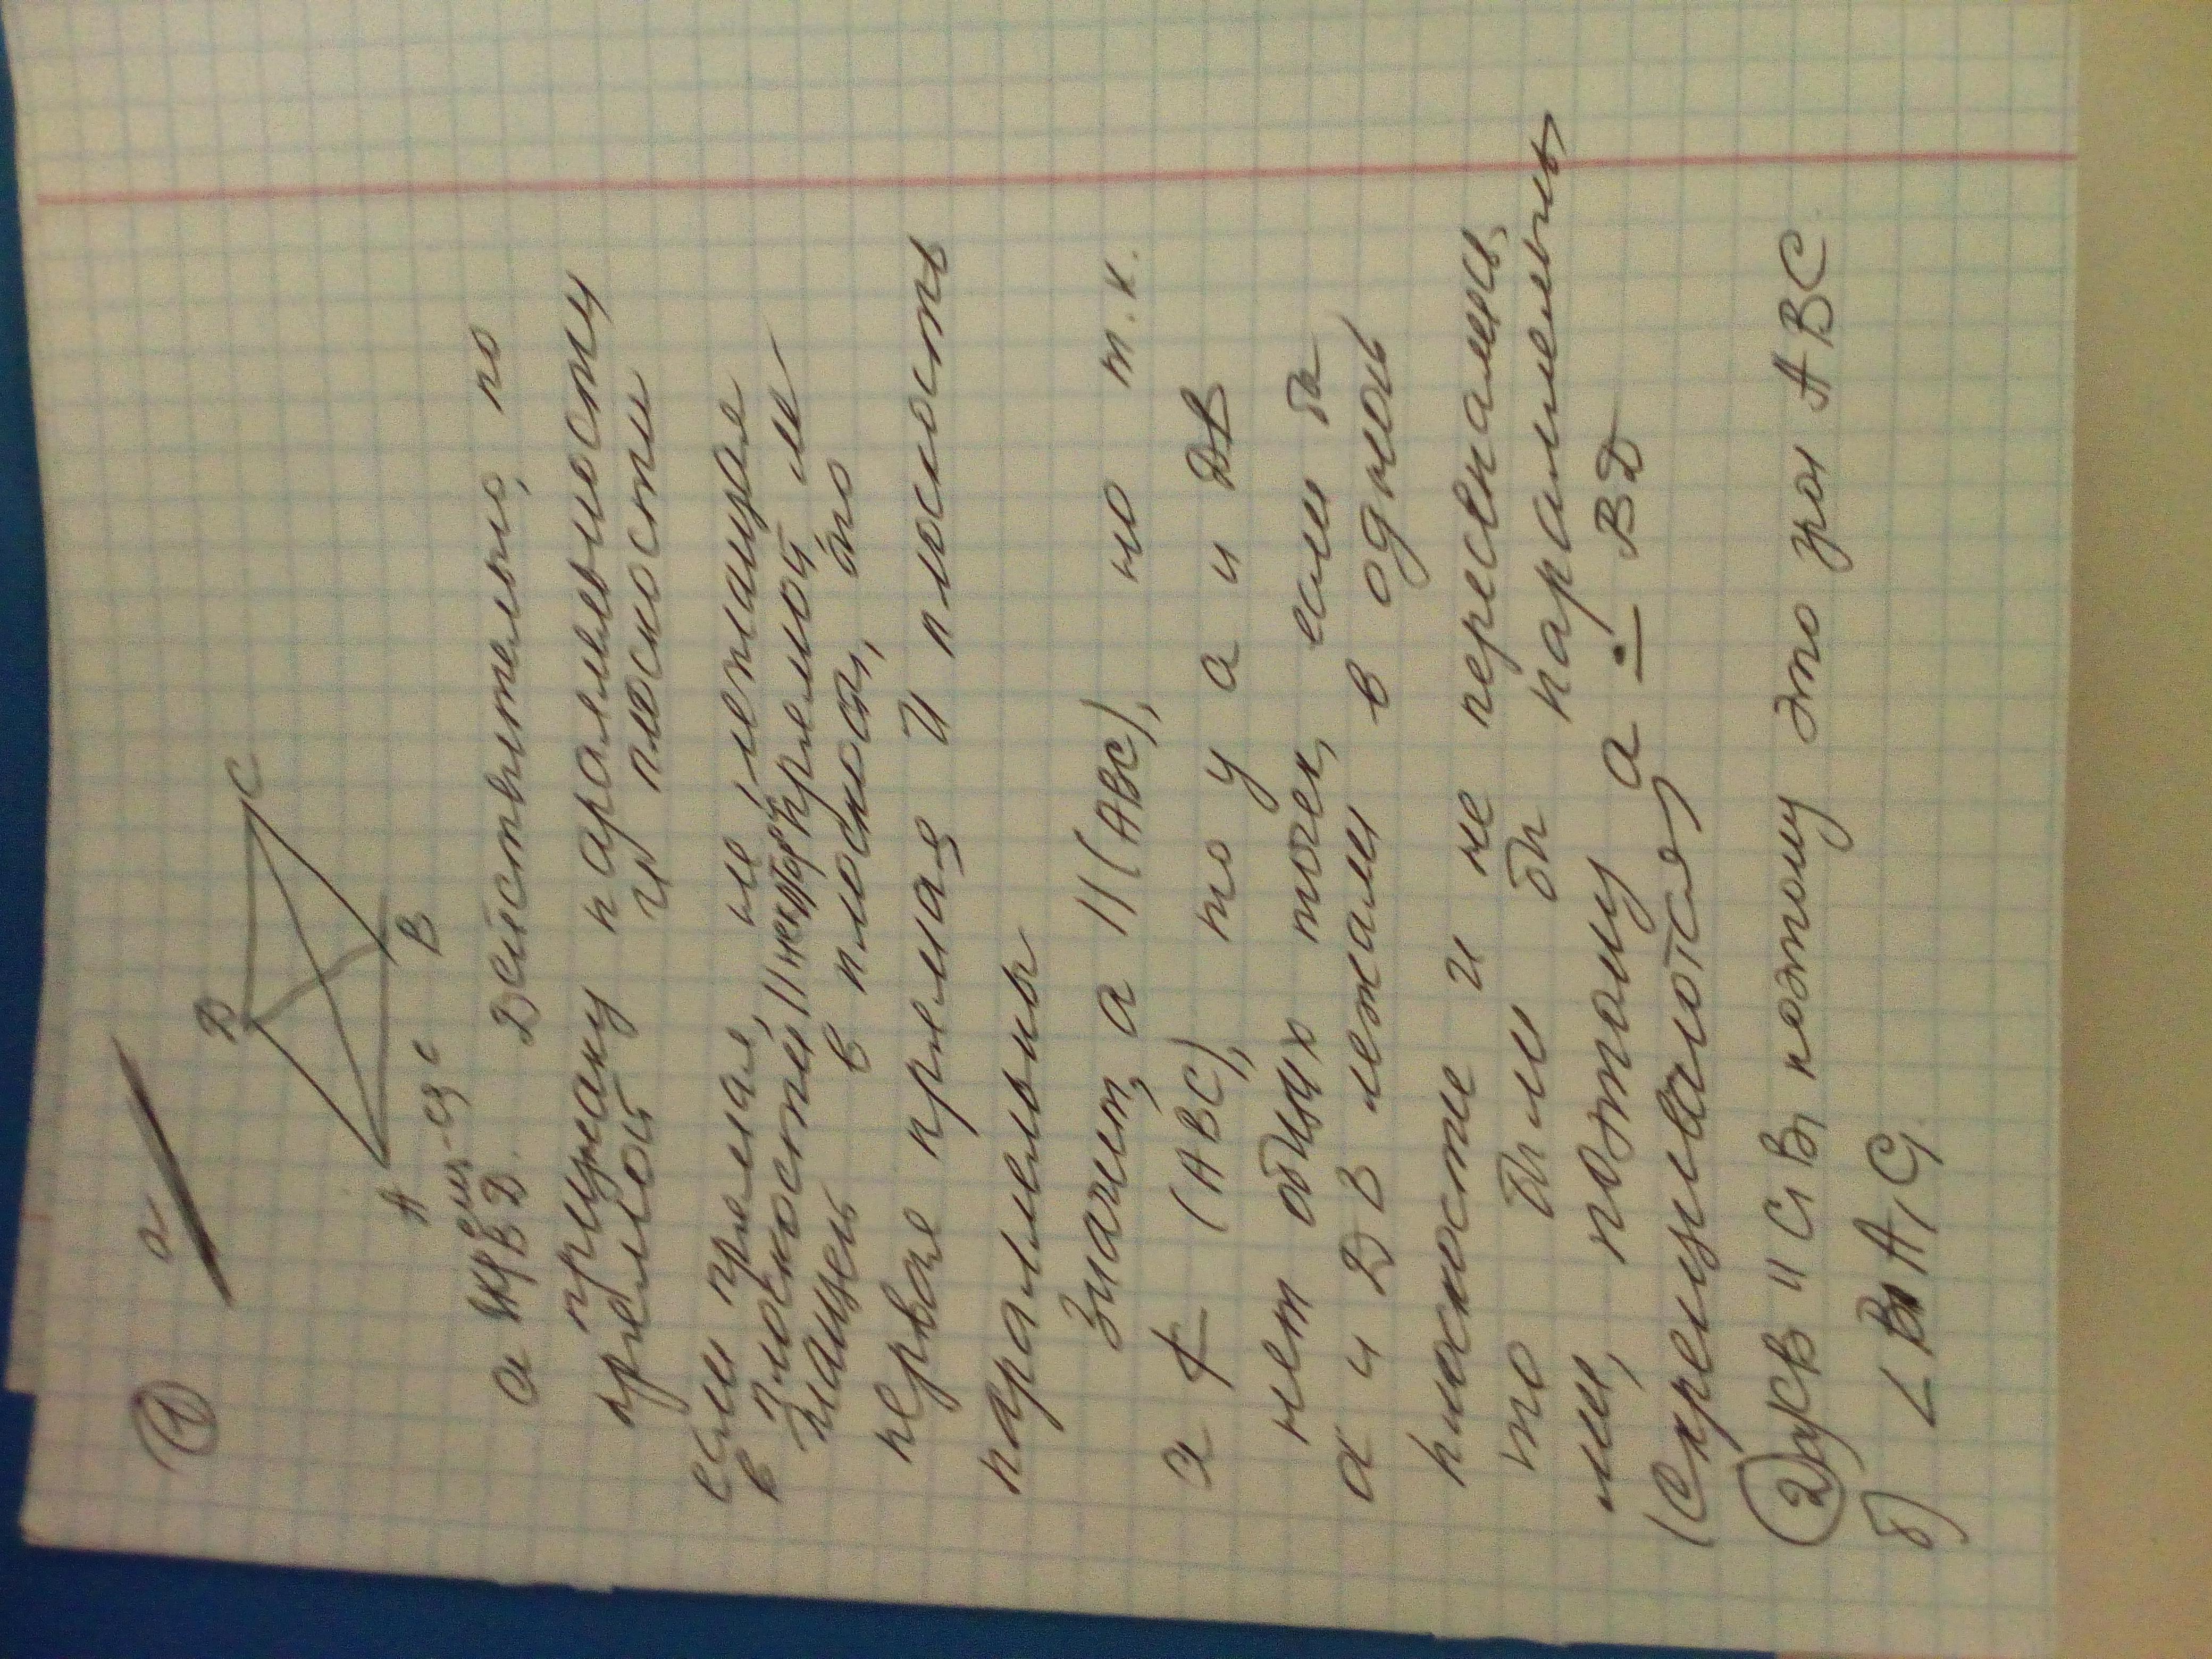 ①
а
D
C
A
B
а BD. Действительно, по
признаку паралельности
прямой и плоскости
если прямая, не лежащая
в плоскости, || некотор прямой ле
жащей в плоскости, то
первае прямая и плоскость
параллельны
Значит, а || (ABC), но т.к.
а ∥ (ABC), то у а и DB
нет общих точек, если бы
а и DB лежали в одной
плоскосте и не пересекались,
то были бы паралельны
ми, потому а ∸ BD
(скрещиваются)
② и C₁B₁ поэтому это угол ABC
б) ∠B₁A₁C₁